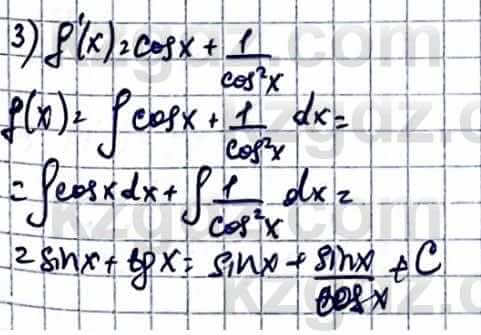 3) f'(x) = cosx + 1/cos²x
f(x) = ∫ cosx + 1/cos²x dx =
= ∫cosxdx + ∫ 1/cos²x dx =
= sinx + tgx = sinx + sinx/cosx + C